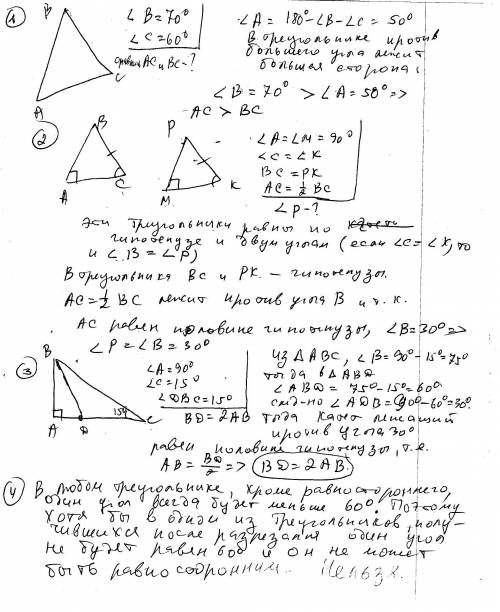 1
B
A
C
∠B=70°
∠C=60°
сравн. AC и BC-?
∠A= 180°-∠B-∠C= 50°
В треугольнике против
большего угла лежит
большая сторона:
∠B=70° > ∠A=50° =>
AC > BC
2
B
A
C
P
M
K
∠A=∠M=90°
∠C=∠K
BC=PK
AC=½ BC
∠P-?
Эти треугольники равны по
гипотенузе и двум углам (если ∠C=∠K, то
и ∠B=∠P)
В треугольника BC и PK - гипотенузы.
AC=½ BC лежит против угла B и т. к.
AC равен половине гипотенузы, ∠B=30° =>
∠P=∠B=30°
3
B
A
D
C
15°
∠A=90°
∠C=15°
∠DBC=15°
BD=2AB
Из △ABC, ∠B=90°-15°=75°
тогда в △ABD
∠ABD= 75°-15°=60°
след-но ∠ADB=90°-60°=30°.
Тогда катет лежащий
против угла 30°
равен половине гипотенузы, т.е.
AB= BD/2 => BD=2AB.
4 В любом треугольнике, кроме равностороннего,
один угол всегда будет меньше 60°. Поэтому
хотя бы в одном из треугольников, полу-
чившихся после разрезания один угол
не будет равен 60° и он не может
быть равносторонним. Нельзя.